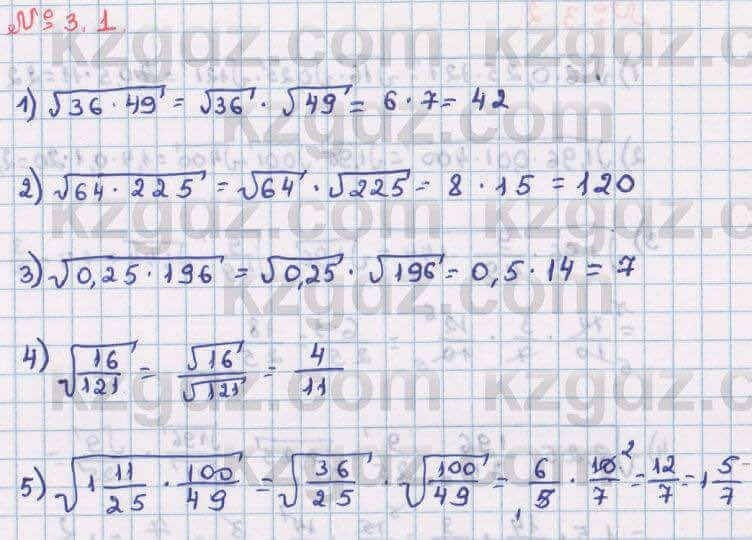 № 3.1.
kzgdz.com
1) √36 · 49 = √36 · √49 = 6 · 7 = 42
kzgdz.com
2) √64 · 225 = √64 · √225 = 8 · 15 = 120
kzgdz.com
3) √0,25 · 196 = √0,25 · √196 = 0,5 · 14 = 7
kzgdz.com
4) √16/121 = √16/√121 = 4/11
kzgdz.com
5) √1 11/25 · 100/49 = √36/25 · √100/49 = 6/5 · 10/7 = 12/7 = 1 5/7